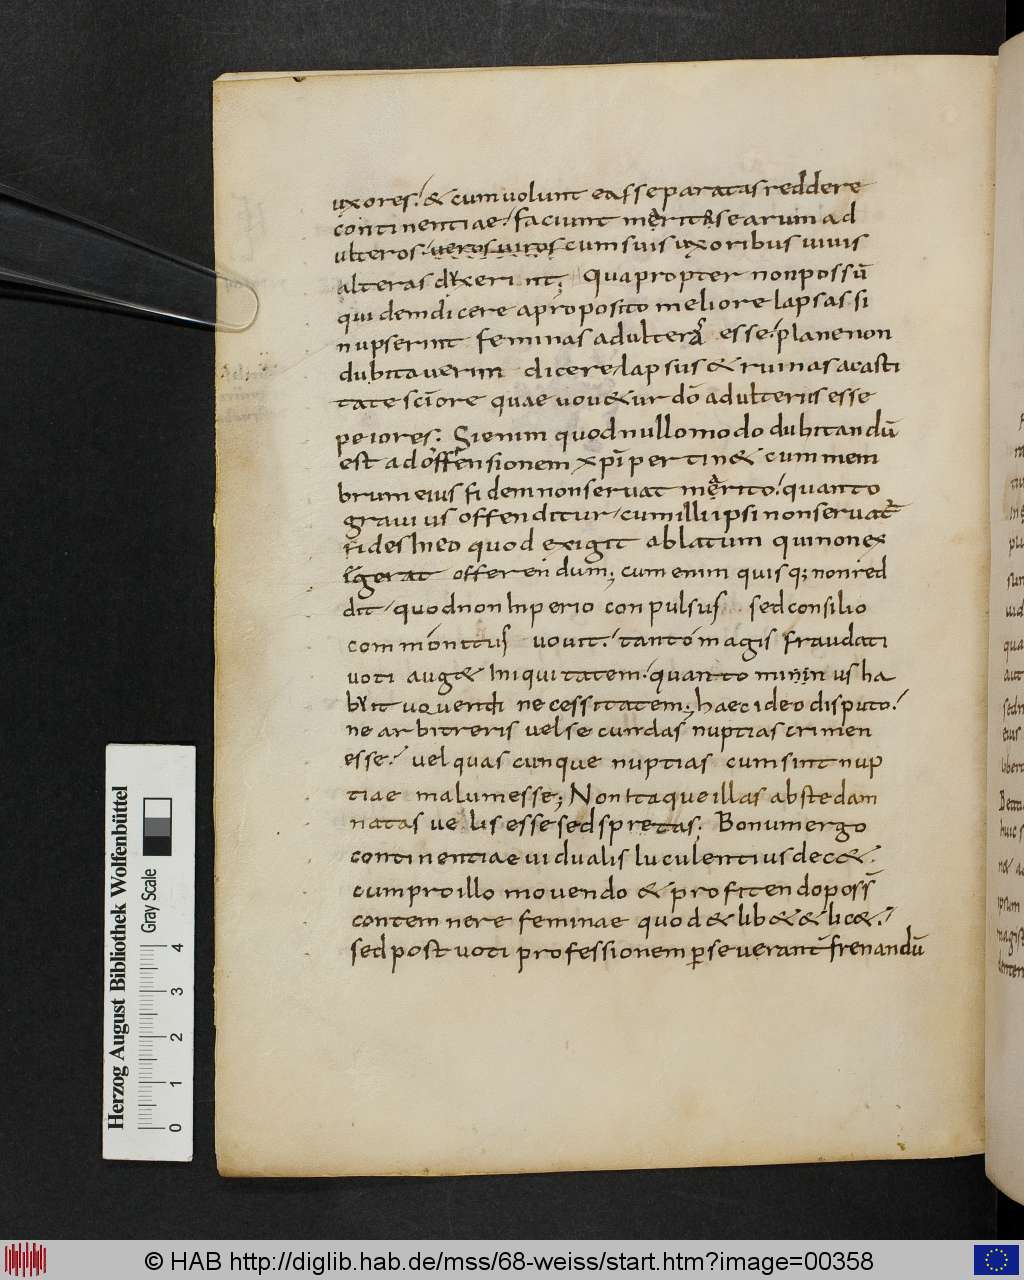 uxores; & cum uolunt eas separatas reddere
continentiae; faciunt maritos earum ad
ulteros ueros uiros cum suis uxoribus uiuis
alteras duxerint; Quapropter non possū
quidem dicere a proposito meliore lapsas si
nupserint feminas adulteras esse; plane non
dubitauerim dicere lapsus & ruinas a casti
tate sc̄iore quae uou&ur dō adulteriis esse
peiores; Si enim quod nullo modo dubitandū
est ad offensionem xp̄i pertin& cum mem
brum eius fidem non seruat marito; quanto
grauius offenditur cum illi ipsi non seruat̄
fides In eo quod exigit ablatum qui non ex
igerat offerendum; cum enim quisq; non red
dit quod non Inperio conpulsus sed consilio
commonitus uouit; tanto magis fraudati
uoti aug& Iniquitatem; quanto minus ha
buit uouendi necessitatem; haec ideo disputo;
ne arbitreris uel secundas nuptias crimen
esse; uel quascunque nuptias cum sint nup
tiae malum esse; Non Itaque illas abs te dam
natas uelis esse sed spretas; Bonum ergo
continentiae uidualis luculentius dec&;
cum pro illo mouendo & profitendo poss̄
contemnere feminae quod & lib& & lic&;
sed post uoti professionem perseuerant̄ frenandū
Herzog August Bibliothek Wolfenbüttel
Gray Scale
0 1 2 3 4
© HAB http://diglib.hab.de/mss/68-weiss/start.htm?image=00358